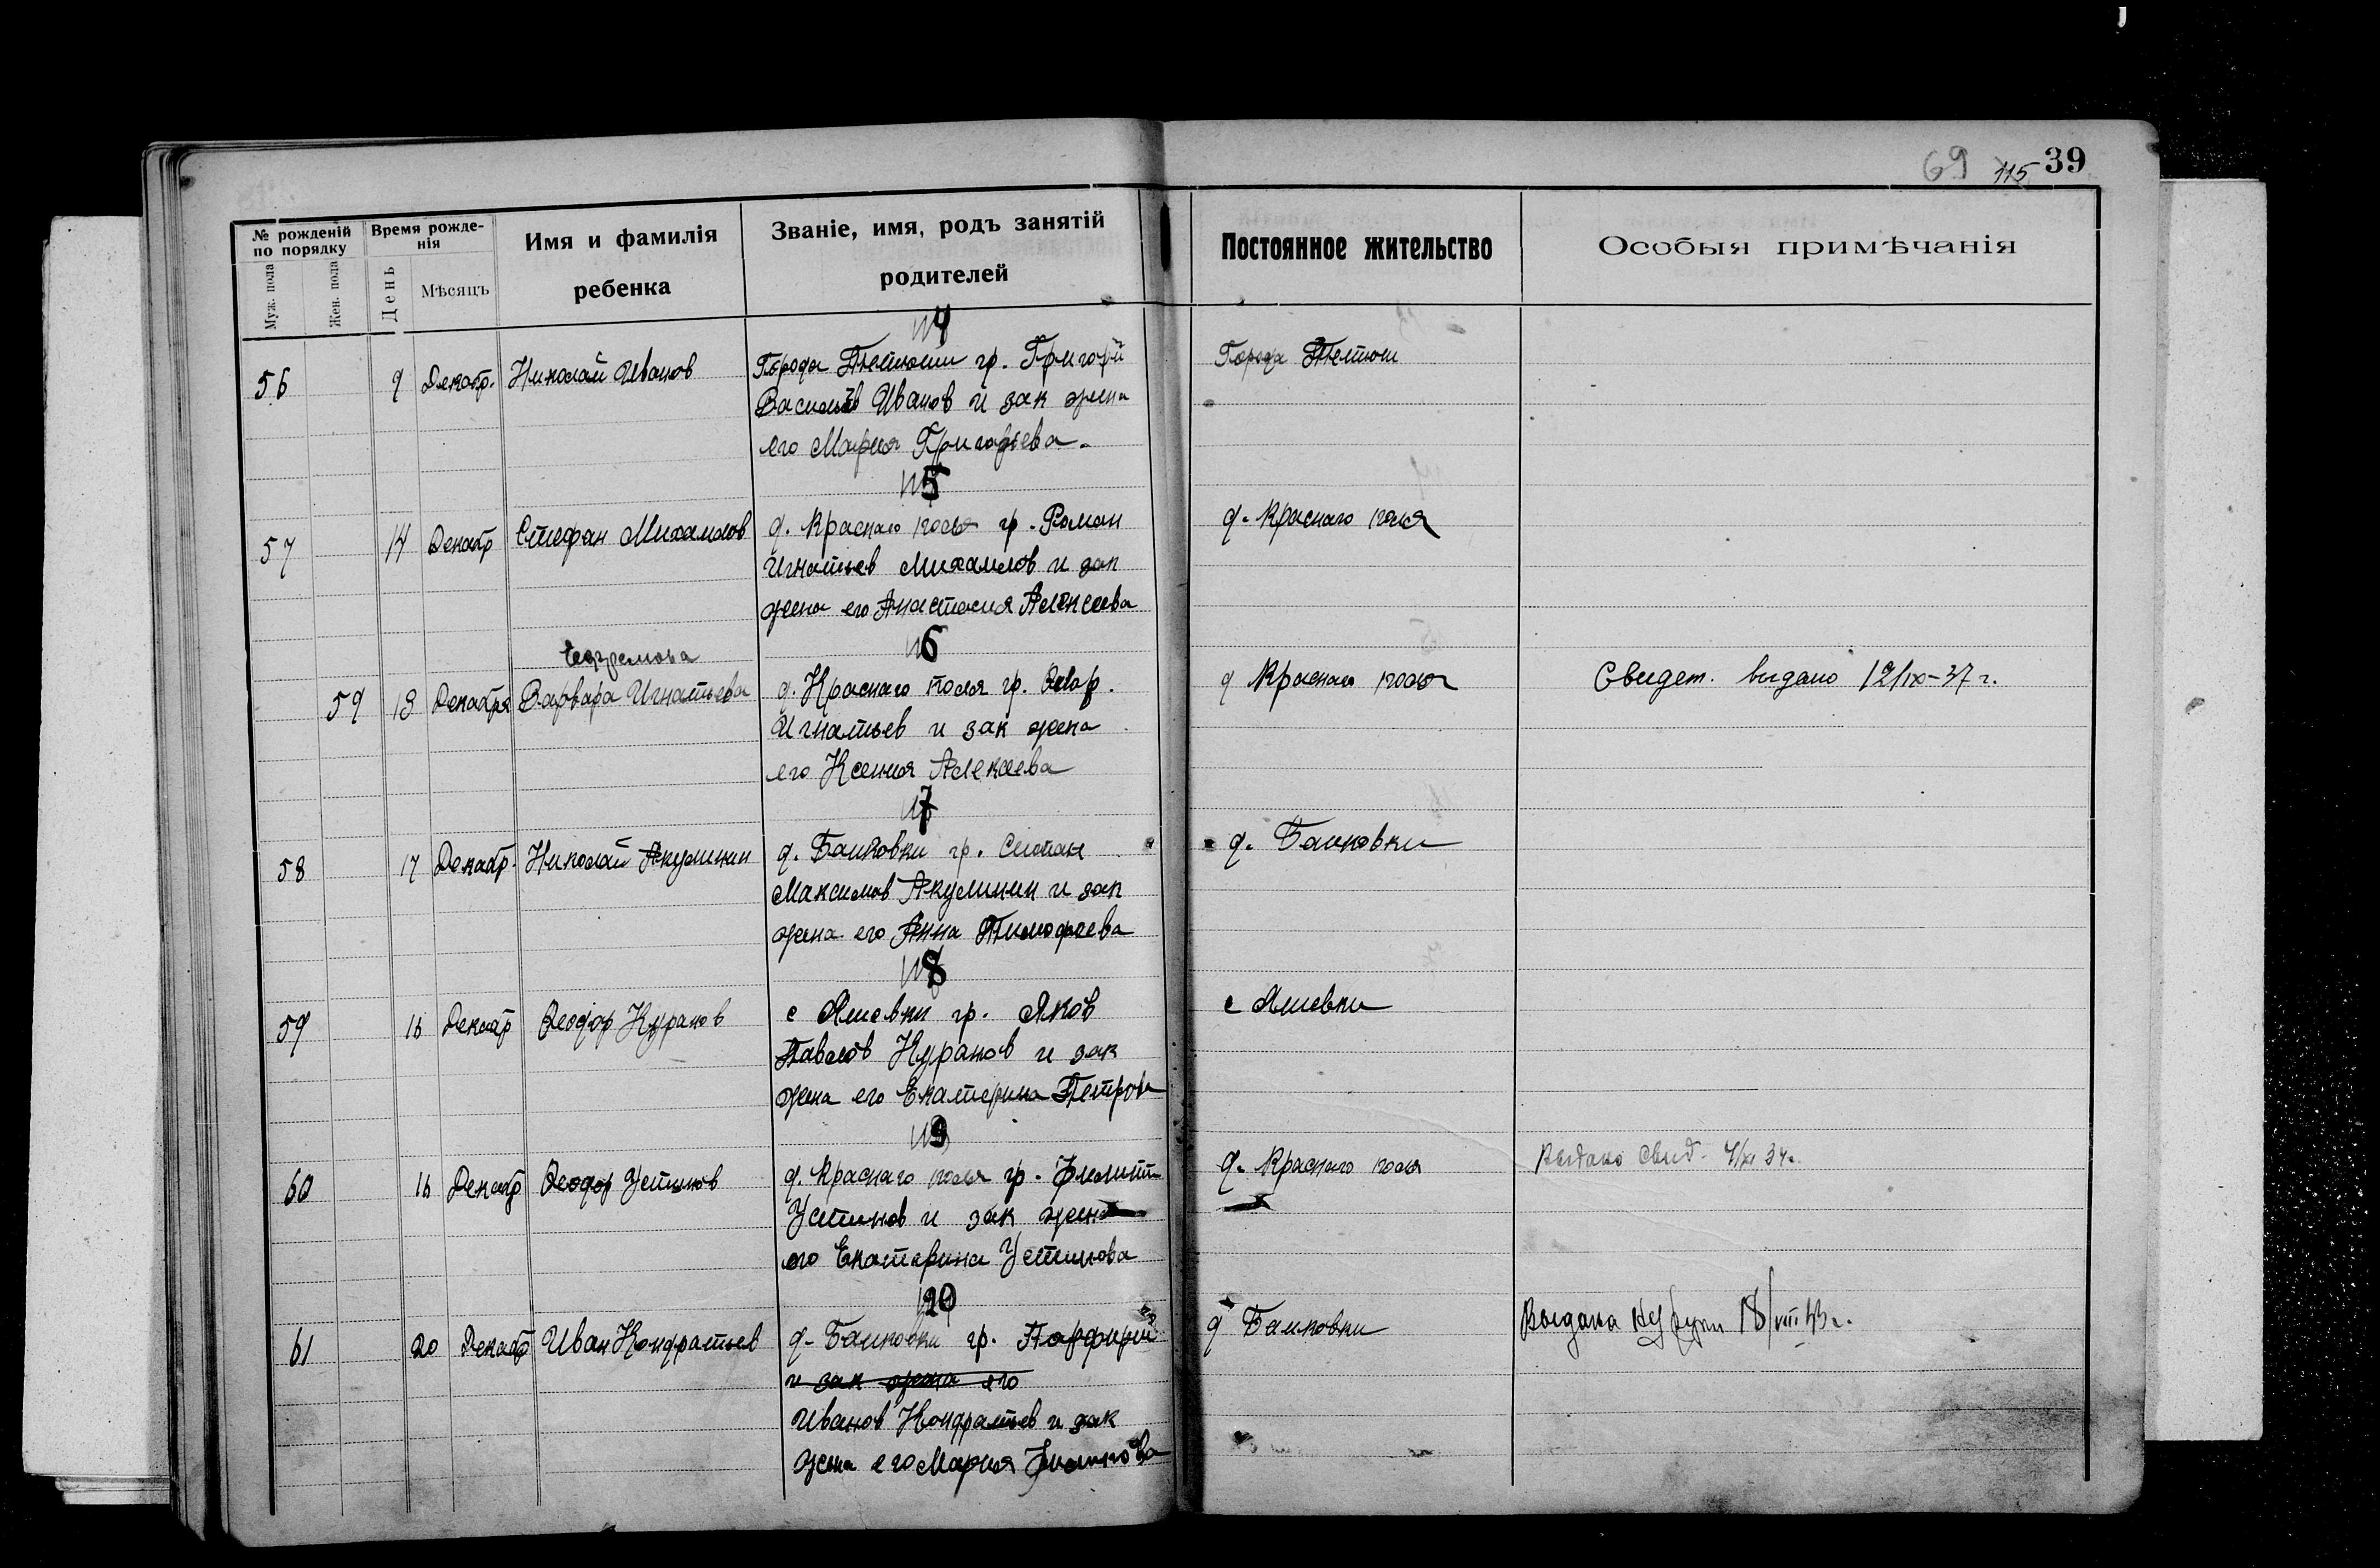 69 115 39
№ рожденій по порядку
Муж. пола
Жен. пола
Время рожде-
нія
День
Мѣсяцъ
Имя и фамилія
ребенка
Званіе, имя, родъ занятій
родителей
Постоянное жительство
Особыя примѣчанія
14
56 9 Декабр. Николай Иванов Города Тетюши гр. Григорий Города Тетюш
Васильев Иванов и зак жена
его Мария Григорьева.
15
57 14 Декабр Стефан Михаилов д. Краснаго поля гр. Роман д. Краснаго поля
Игнатьев Михаилов и зак
жена его Анастасия Алексеева
16
Ефремова
59 13 Декабря Варвара Игнатьева д. Краснаго поля гр. д Краснаго поля Свидет. выдано 12/IX-37 г.
Игнатьев и зак жена
его Ксения Алексеева
17
58 17 Декабр. Николай Акулинин д. Банковки гр. Степан д. Банковки
Максимов Акулинин и зак
жена его Анна Тимофеева
18
59 16 Декабр Феодор Куранов с Ямевки гр. Яков с Ямевки
Павлов Куранов и зак
жена его Екатерина Петрова
19
60 16 Декабр Феодор Устинов д. Краснаго поля гр. Филипп д. Краснаго поля Выдано свид.
Устинов и зак жена
его Екатерина Устинова
20
61 20 Декабр Иван Кондратьев д. Банковки гр. Порфирий д Банковки Выдана 18/VIII 43 г.
и зак жена его
Иванов Кондратьев и зак
жена его Мария